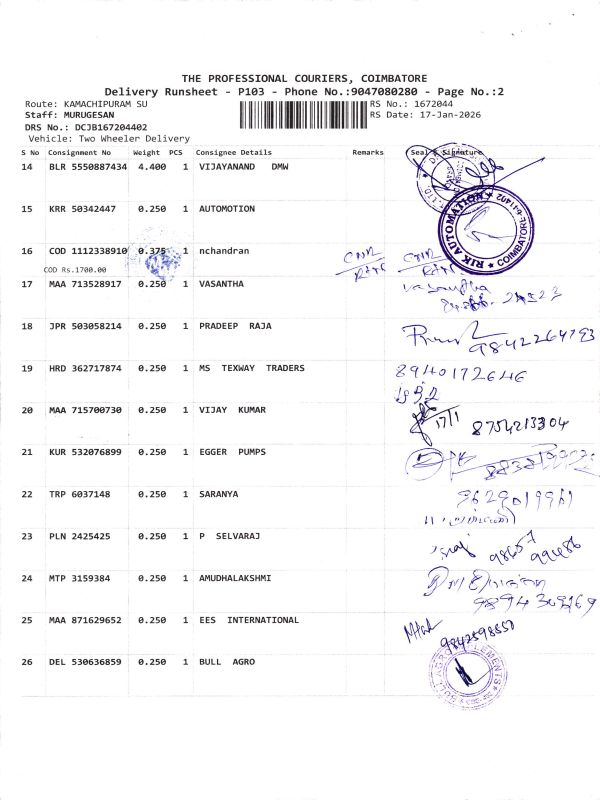 THE PROFESSIONAL COURIERS, COIMBATORE
Delivery Runsheet - P103 - Phone No.:9047080280 - Page No.:2
Route: KAMACHIPURAM SU RS No.: 1672044
Staff: MURUGESAN RS Date: 17-Jan-2026
DRS No.: DCJB167204402
Vehicle: Two Wheeler Delivery
S No Consignment No Weight PCS Consignee Details Remarks Seal & Signature
14 BLR 5550887434 4.400 1 VIJAYANAND DMW
15 KRR 50342447 0.250 1 AUTOMOTION
RIK AUTOMATION ★ COIMBATORE-641402
16 COD 1112338910 0.375 1 nchandran
COD Rs.1700.00
17 MAA 713528917 0.250 1 VASANTHA
18 JPR 503058214 0.250 1 PRADEEP RAJA
9842264793
19 HRD 362717874 0.250 1 MS TEXWAY TRADERS 8940172646
20 MAA 715700730 0.250 1 VIJAY KUMAR 17/1 8754213304
21 KUR 532076899 0.250 1 EGGER PUMPS
22 TRP 6037148 0.250 1 SARANYA 9629019961
23 PLN 2425425 0.250 1 P SELVARAJ
24 MTP 3159384 0.250 1 AMUDHALAKSHMI
25 MAA 871629652 0.250 1 EES INTERNATIONAL
9842598557
26 DEL 530636859 0.250 1 BULL AGRO